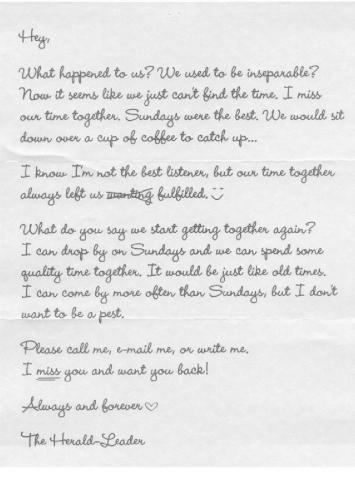 Hey,
What happened to us? We used to be inseparable?
Now it seems like we just can't find the time. I miss
our time together. Sundays were the best. We would sit
down over a cup of coffee to catch up...
I know I'm not the best listener, but our time together
always left us wanting fulfilled.
What do you say we start getting together again?
I can drop by on Sundays and we can spend some
quality time together. It would be just like old times.
I can come by more often than Sundays, but I don't
want to be a pest.
Please call me, e-mail me, or write me.
I miss you and want you back!
Always and forever♡
The Herald-Leader